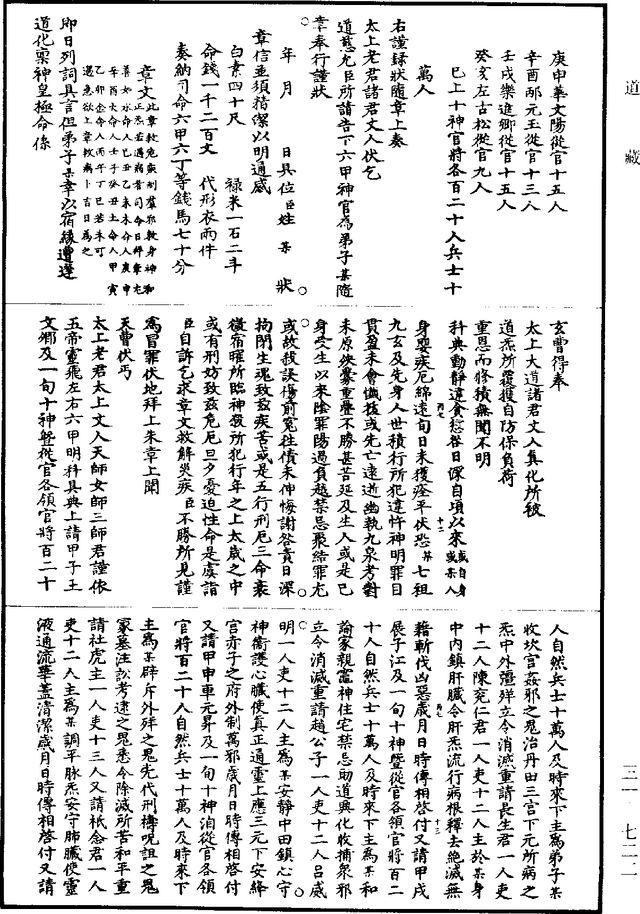 道藏
庚申華文陽從官十五人
辛酉邴元玉從官十三人
壬戌樂進卿從官十五人
癸亥左石松從官九人
已上十神官將各百二十人兵士十
萬人
右謹録狀隨章上奏
太上老君諸君丈人伏乞
道慈允臣所請告下六甲神官爲弟子某隨
章奉行謹狀
年月日具位臣姓某狀
章信並須精潔以明通感
白素四十尺 祿米一石二斗
命錢一千二百文 代形衣兩件
奏納司命六甲六丁等錢馬七十分
章文
即日列詞具言但弟子某幸以宿緣遭逢
道化稟神皇極命係
玄曹得奉
太上大道諸君丈人真化所被
道炁所覆獲自防保負荷
重恩而修積無聞不明
科典動静違負愆咎日深自頃以來或自身或某人
身嬰疾厄綿遠旬日未獲痊平伏恐某七祖
九玄及先身人世積行所犯違忤神明罪目
貫盈未會懺拔或先亡遠逝幽執九泉考對
未原殃釁重疊不勝甚苦延及生人或是已
身受生以來陰罪陽過負越禁忌聚結罪尤
或故殺誤傷前冤往債未伸悔謝咎責日深
拘閉生魂致兹疾苦或是五行刑厄三命衰
微宿曜所臨神殺所犯行年之上太歲之中
或有刑妨致兹危厄旦夕憂迫性命是虞詣
臣自訴乞求章文救解災疾臣不勝所見謹
爲冒罪伏地拜上朱章上聞
天曹伏丐
太上老君太上丈人天師女師三師君謹依
五帝靈飛左右六甲明科具典上請甲子王
文卿及一旬十神暨從官各領官將百二十
人自然兵士十萬人及時來下主爲弟子某
收坎宫姦邪之鬼治丹田三宫下元所病之
炁中外彊殍立令消滅重請長生君一人吏
十二人陳兖仁君一人吏十二人主於某身
中内鎮肝臟令肝炁流行病根釋去絶滅無
藉斬伐凶惡歲月日時傳相啓付又請甲戌
展子江及一旬十神暨從官各領官將百二
十人自然兵士十萬人及時來下主爲某和
諭家親竈神住宅禁忌助道興化收捕衆邪
立令消滅重請趙公子一人吏十二人吕威
明一人吏十二人主爲某安静中田鎮心守
神衛護心臟使真正通靈上應三元下安絳
宫赤子之府外制萬邪歲月日時傳相啓付
又請甲申扈元昇及一旬十神洎從官各領
官將百二十人自然兵士十萬人及時來下
主爲某辟斥外殍之鬼先代刑禱呪詛之鬼
冢墓注訟考逮之鬼悉令除滅所苦和平重
請社虎主一人吏十三人又請秖念君一人
吏十二人主爲某調平脉炁安守肺臟使靈
液通流華蓋清潔歲月日時傳相啓付又請
三一·七二二